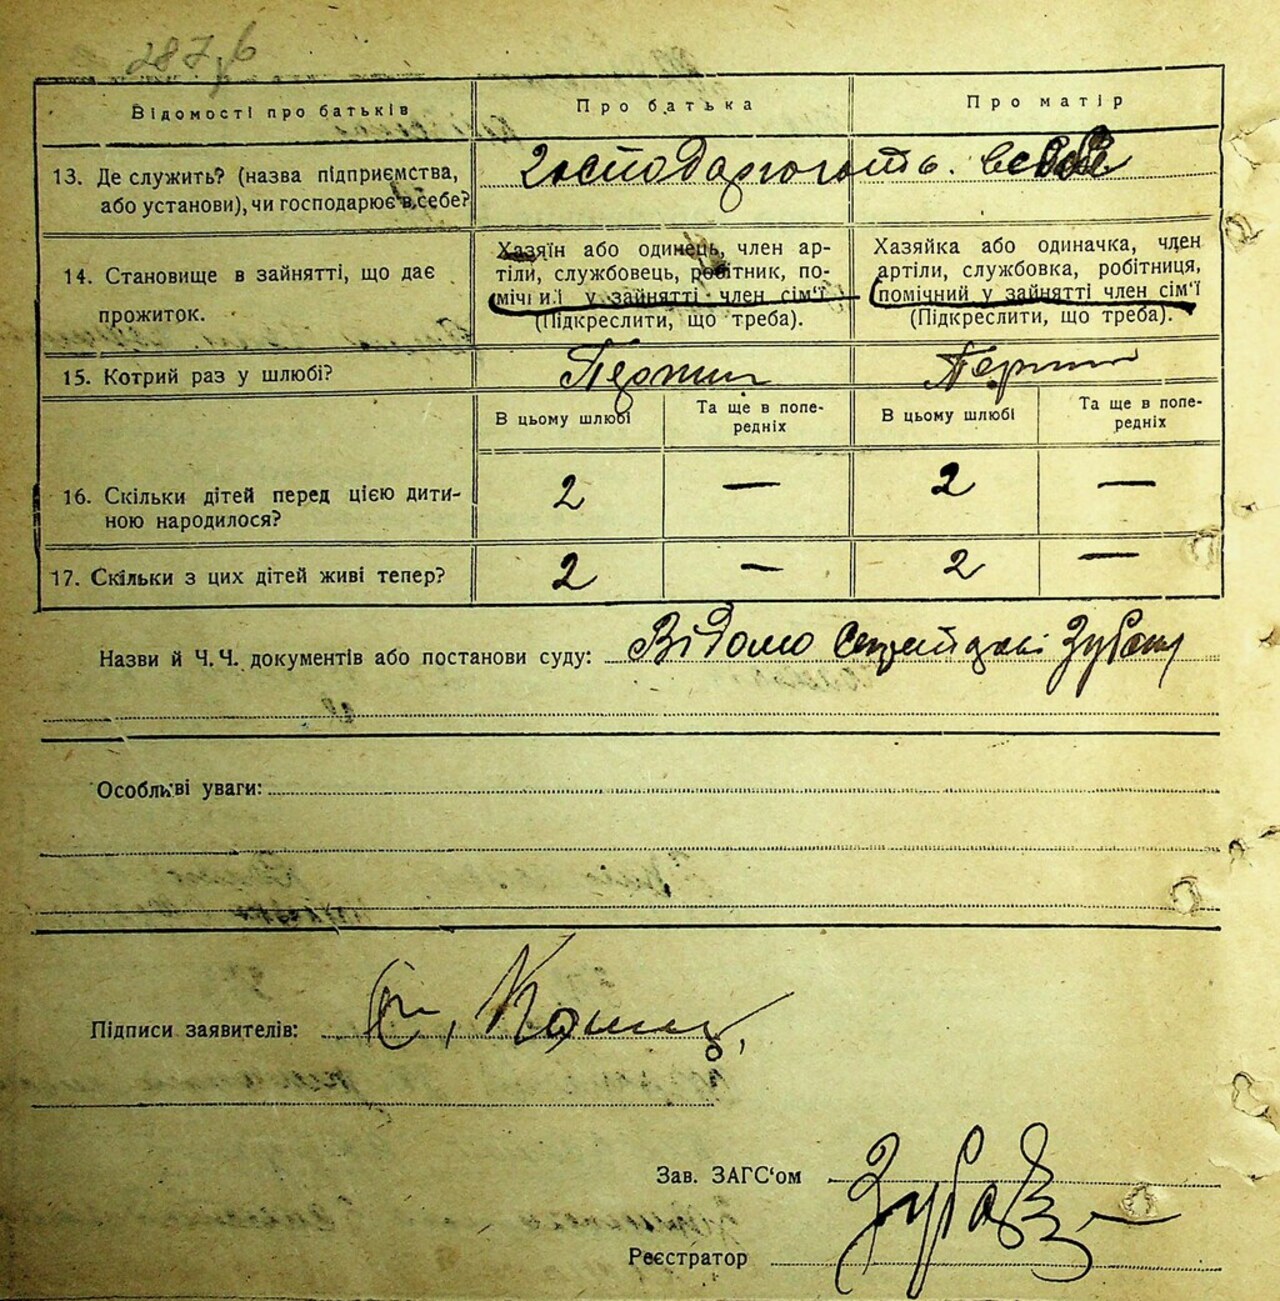 287,б
Відомості про батьків
Про батька
Про матір
13. Де служить? (назва підприємства,
або установи), чи господарює в себе?
Господарюють. в себе
14. Становище в зайнятті, що дає
прожиток.
Хазяїн або одинець, член ар-
тіли, службовець, робітник, по-
мічний у зайнятті член сім'ї
(Підкреслити, що треба).
Хазяйка або одиначка, член
артіли, службовка, робітниця,
помічний у зайнятті член сім'ї
(Підкреслити, що треба).
15. Котрий раз у шлюбі?
Перший
Перший
В цьому шлюбі
Та ще в попе-
редніх
В цьому шлюбі
Та ще в попе-
редніх
16. Скільки дітей перед цією дити-
ною народилося?
2 — 2 —
17. Скільки з цих дітей живі тепер?
2 — 2 —
Назви й Ч.Ч. документів або постанови суду: Відомо
Особливі уваги:
Підписи заявителів:
Зав. ЗАГС'ом
Реєстратор